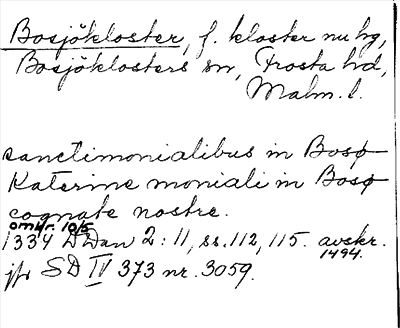 Bosjökloster, f. kloster nu hg,
Bosjöklosters sn, Frosta hd,
Malm. l.
sanctimonialibus in Bosø
Katerine moniali in Bosø
cognate nostre.
omkr. 10/5
1334 DDan 2:11, ss. 112, 115. avskr.
1494.
jfr SD IV 373 nr. 3059.